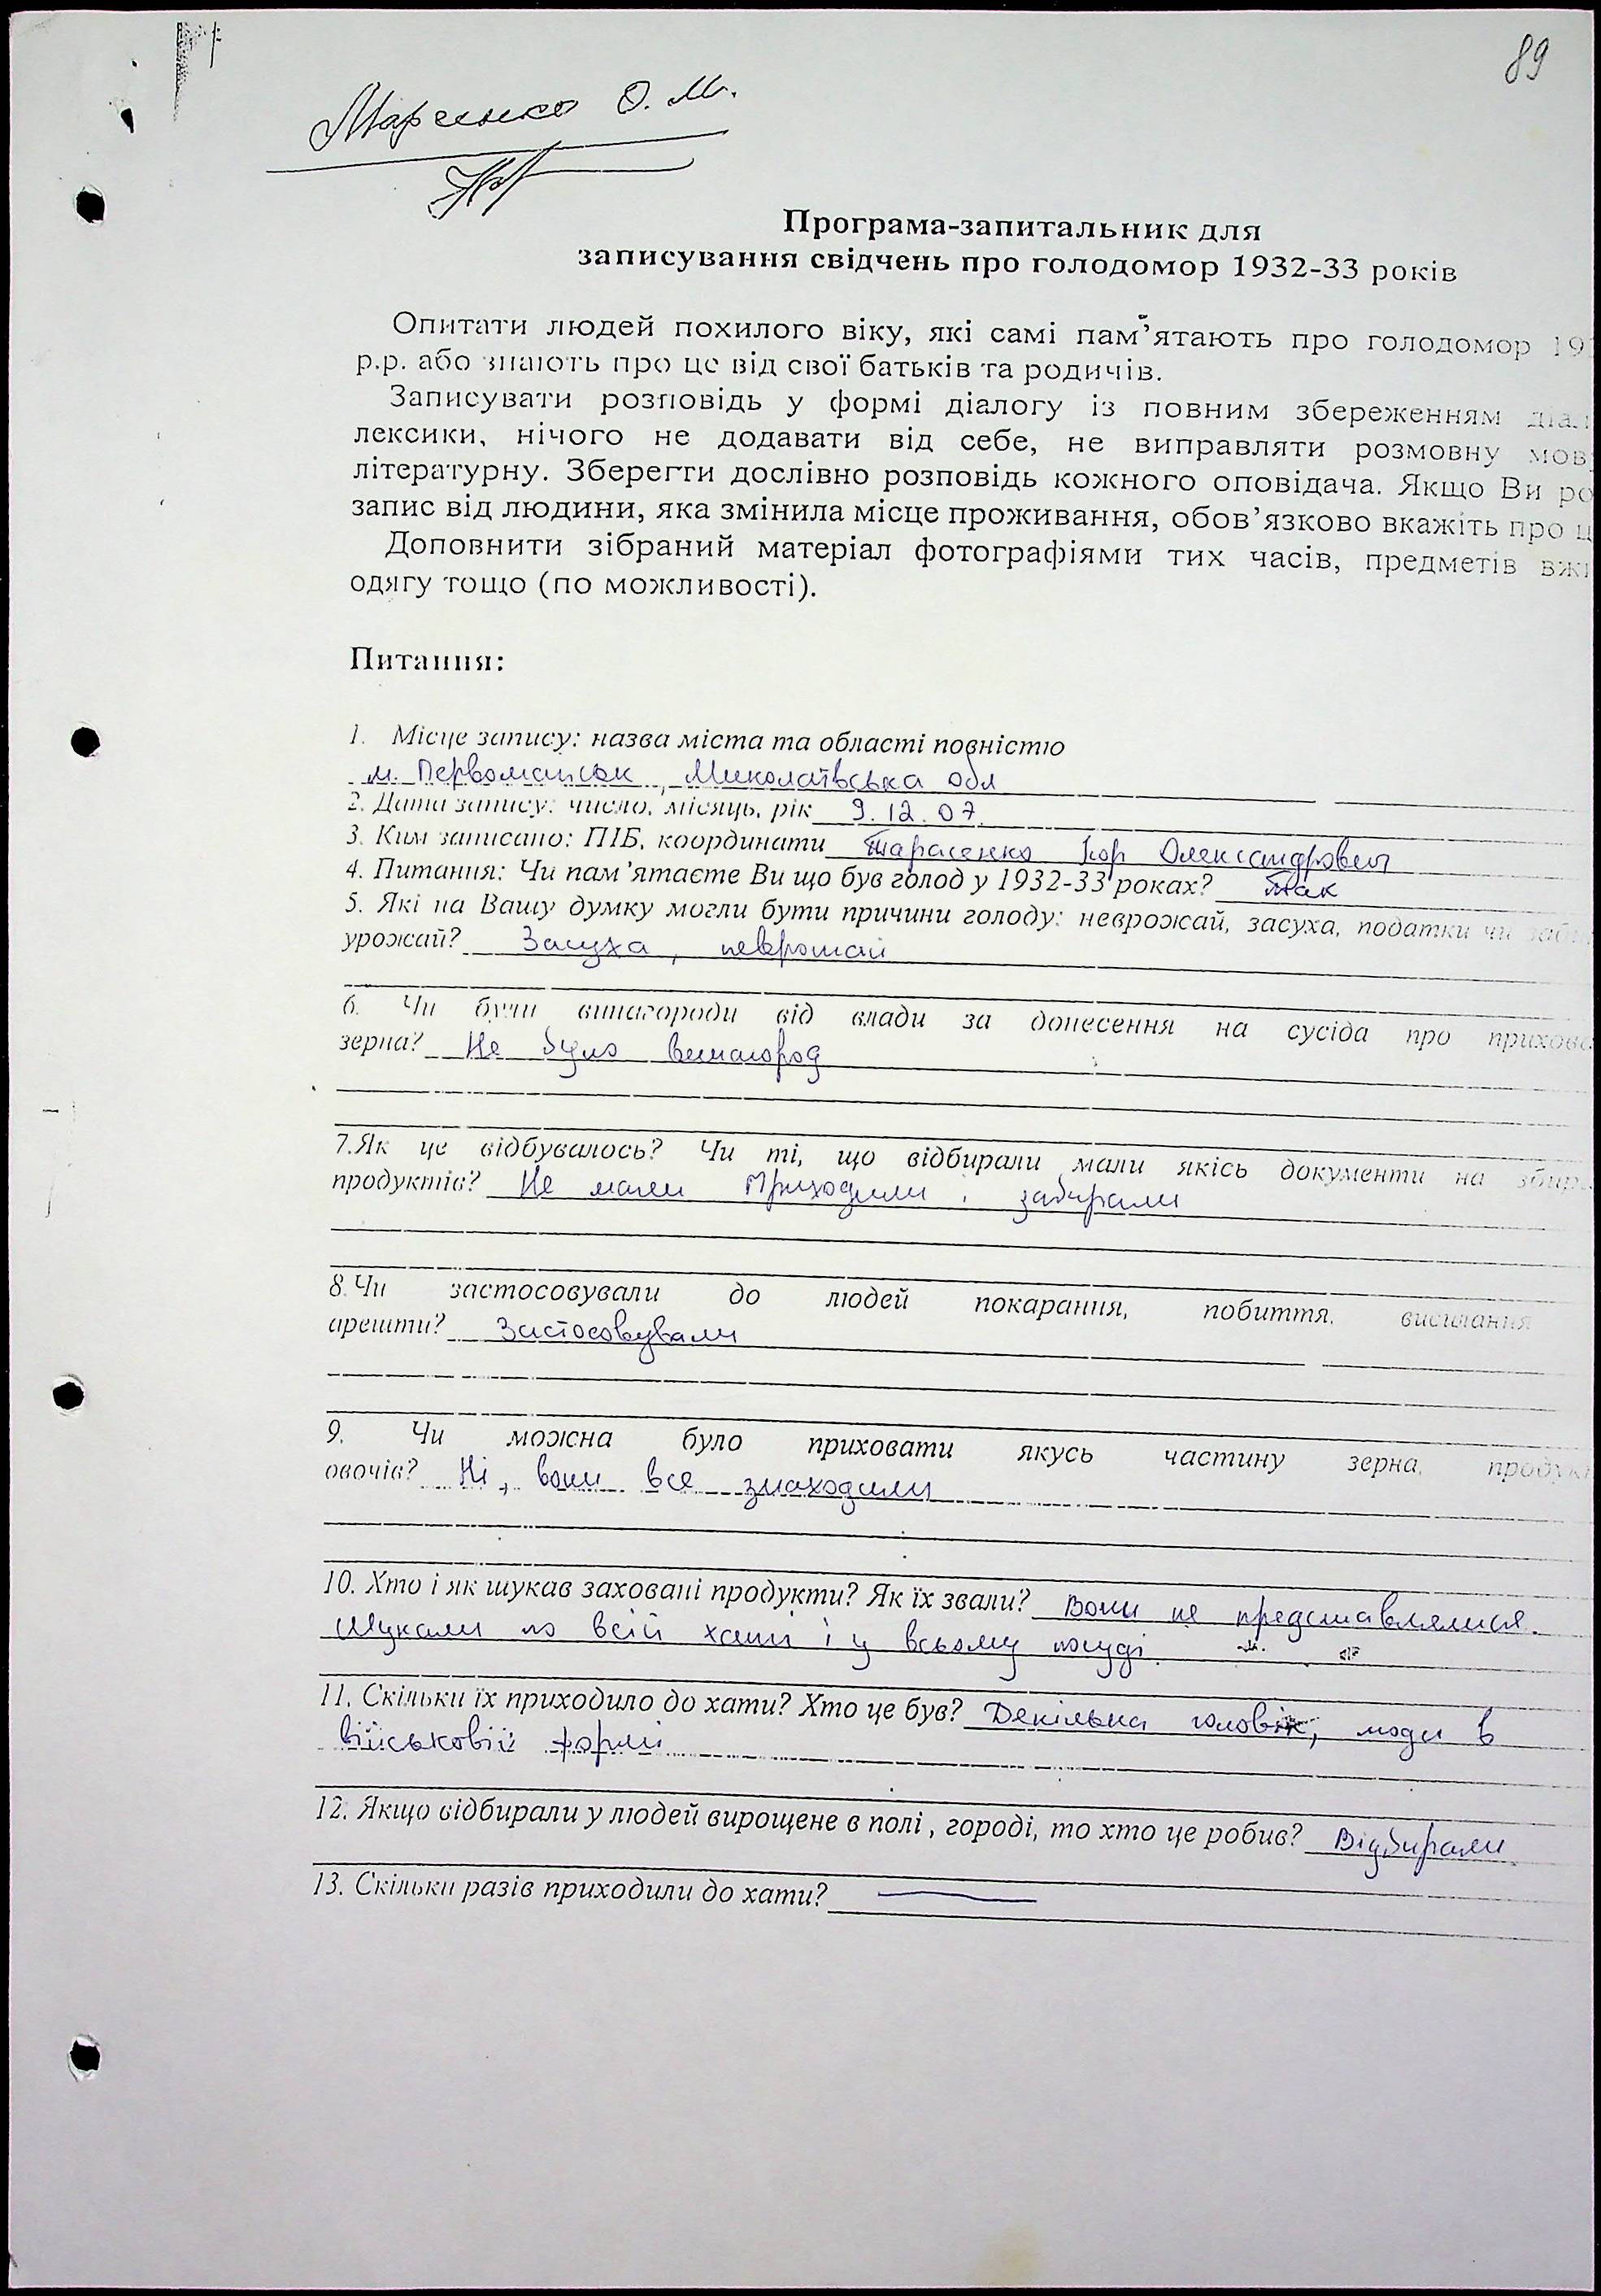 89
Марченко О. М.
Програма-запитальник для
записування свідчень про голодомор 1932-33 років
Опитати людей похилого віку, які самі пам’ятають про голодомор 19
р.р. або знають про це від свої батьків та родичів.
Записувати розповідь у формі діалогу із повним збереженням діал
лексики, нічого не додавати від себе, не виправляти розмовну мов
літературну. Зберегти дослівно розповідь кожного оповідача. Якщо Ви ро
запис від людини, яка змінила місце проживання, обов’язково вкажіть про ц
Доповнити зібраний матеріал фотографіями тих часів, предметів вжи
одягу тощо (по можливості).
Питання:
1. Місце запису: назва міста та області повністю
м. Первомайськ, Миколаївська обл
2. Дата запису: число, місяць, рік 9.12.07.
3. Ким записано: ПІБ, координати Тарасенко Ігор Олександрович
4. Питання: Чи пам’ятаєте Ви що був голод у 1932-33 роках? Так
5. Які на Вашу думку могли бути причини голоду: неврожай, засуха, податки чи заб
урожай? Засуха, неврожай
6. Чи були винагороди від влади за донесення на сусіда про прихова
зерна? Не було винагород
7.Як це відбувалось? Чи ті, що відбирали мали якісь документи на збир
продуктів? Не мали Приходили і забирали
8.Чи застосовували до людей покарання, побиття, висилання
арешти? Застосовували
9. Чи можна було приховати якусь частину зерна, продук
овочів? Ні, вони все знаходили
10. Хто і як шукав заховані продукти? Як їх звали? Вони не представлялися.
Шукали по всій хаті і у всьому посуді.
11. Скільки їх приходило до хати? Хто це був? Декілька чоловік, люди в
військовій формі
12. Якщо відбирали у людей вирощене в полі, городі, то хто це робив? Відбирали
13. Скільки разів приходили до хати? —